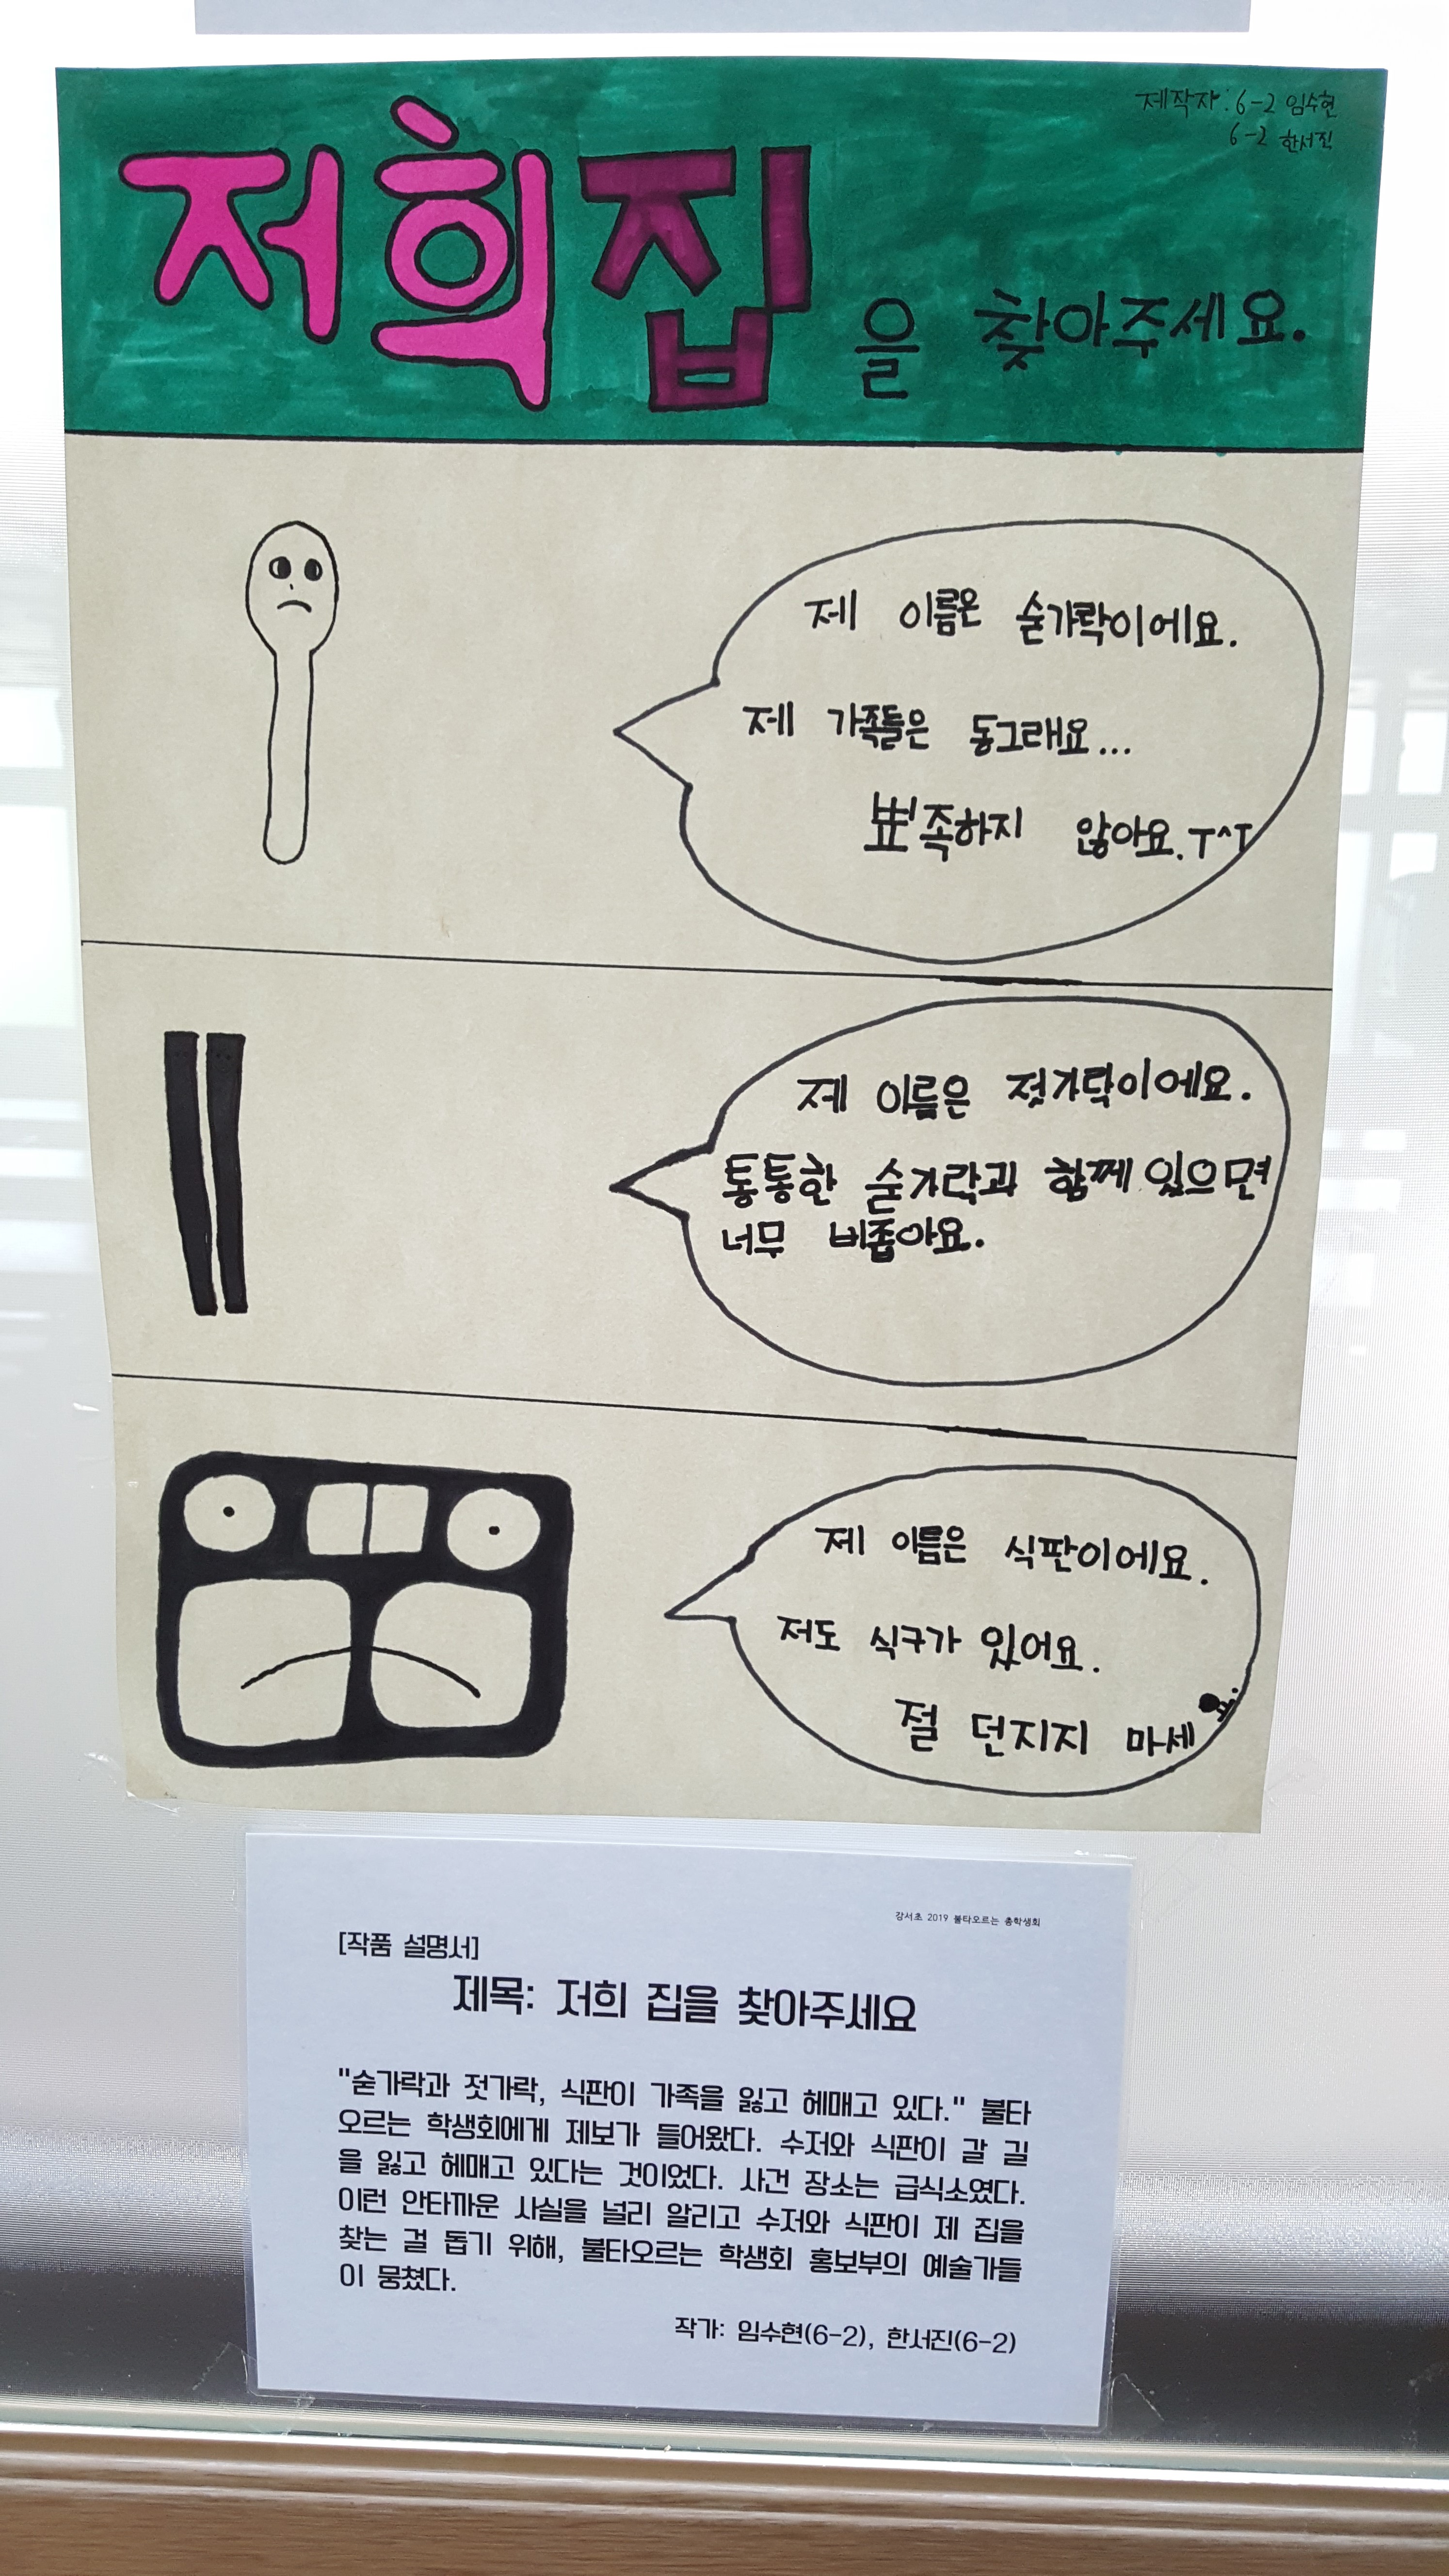 제작자: 6-2 임수현
6-2 한서진
저희집을 찾아주세요.
제 이름은 숟가락이에요.
제 가족들은 동그래요...
뾰족하지 않아요. T^T
제 이름은 젓가락이에요.
통통한 숟가락과 함께 있으면
너무 비좁아요.
제 이름은 식판이에요.
저도 식구가 있어요.
절 던지지 마세요.
강서초 2019 불타오르는 총학생회
[작품 설명서]
제목: 저희 집을 찾아주세요
"숟가락과 젓가락, 식판이 가족을 잃고 헤매고 있다." 불타
오르는 학생회에게 제보가 들어왔다. 수저와 식판이 갈 길
을 잃고 헤매고 있다는 것이었다. 사건 장소는 급식소였다.
이런 안타까운 사실을 널리 알리고 수저와 식판이 제 집을
찾는 걸 돕기 위해, 불타오르는 학생회 홍보부의 예술가들
이 뭉쳤다.
작가: 임수현(6-2), 한서진(6-2)